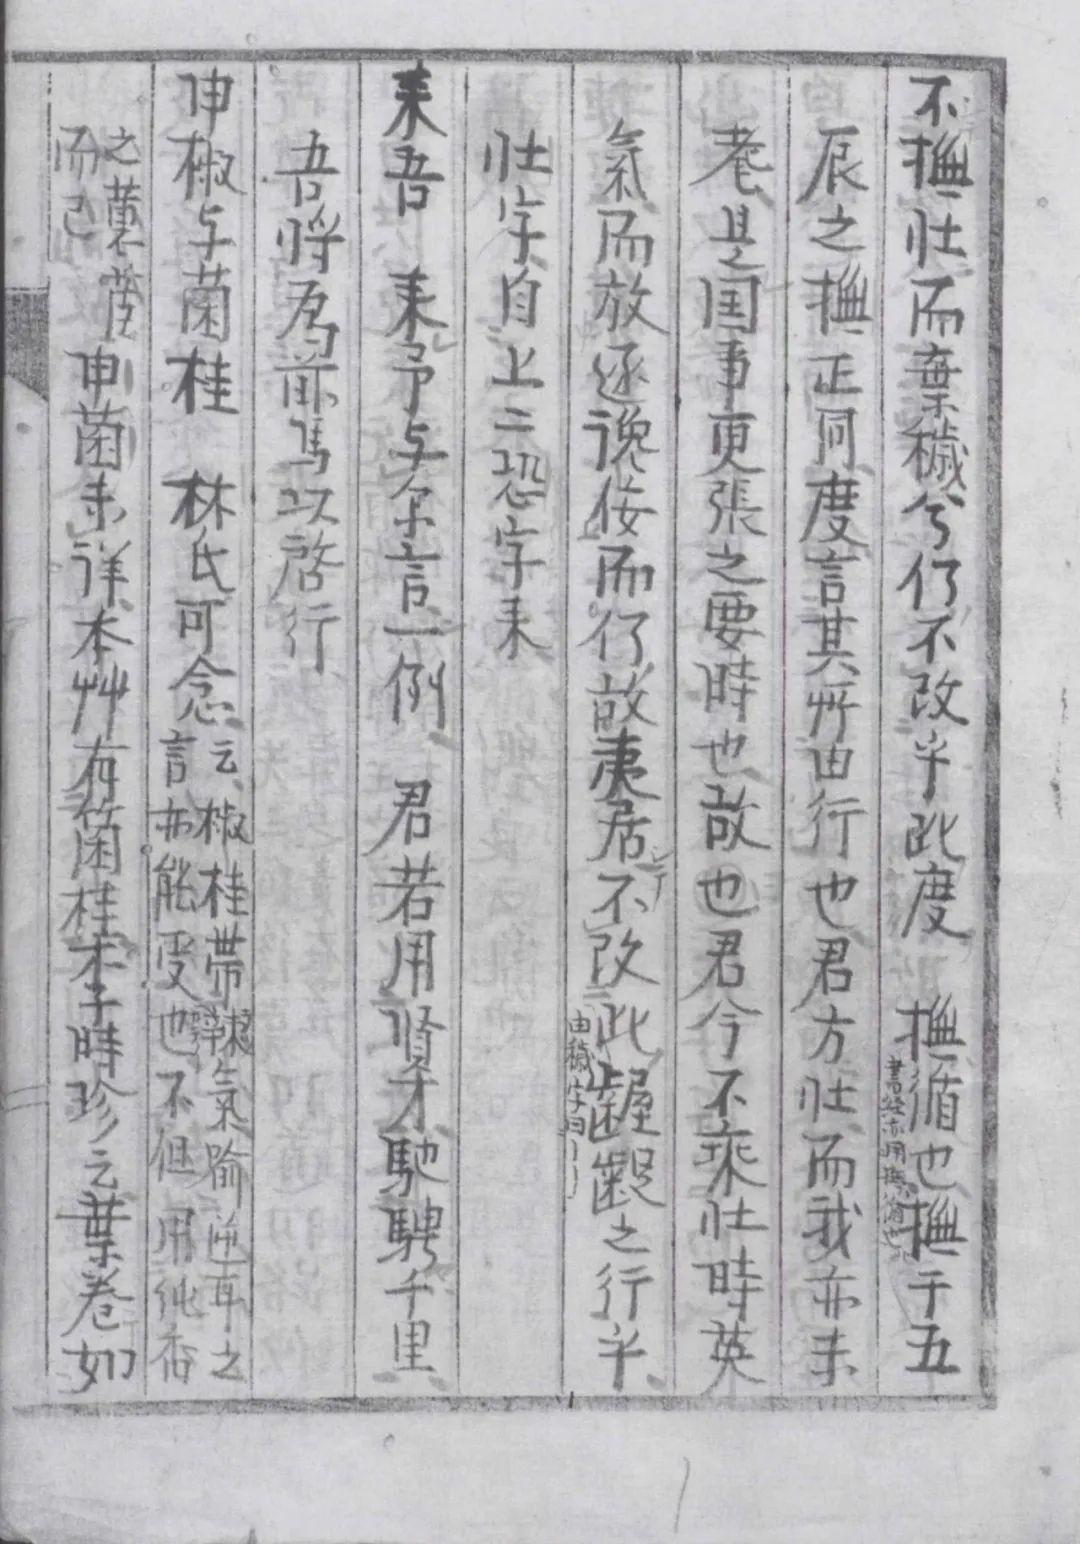 不撫壯而棄穢兮仍不改乎此度 撫循也撫于五
書経亦用撫循也
辰之撫正同度言其所由行也君方壯而我亦未
老是国事更張之要時也故也君今不乘壯時英
氣而放逐讒佞而仍故夷居不改此齷齪之行乎
由穢字出
壯字自上二恐字来
来吾 来予与尓言一例 君若用賢才馳騁千里
吾将為前馬以啓行
申椒与菌桂 林氏可念云椒桂帯辣氣喻逆耳之
言亦能受也不但用純香
之蕙茝
而已
申菌未詳本艸有箘桂李時珍云葉卷如